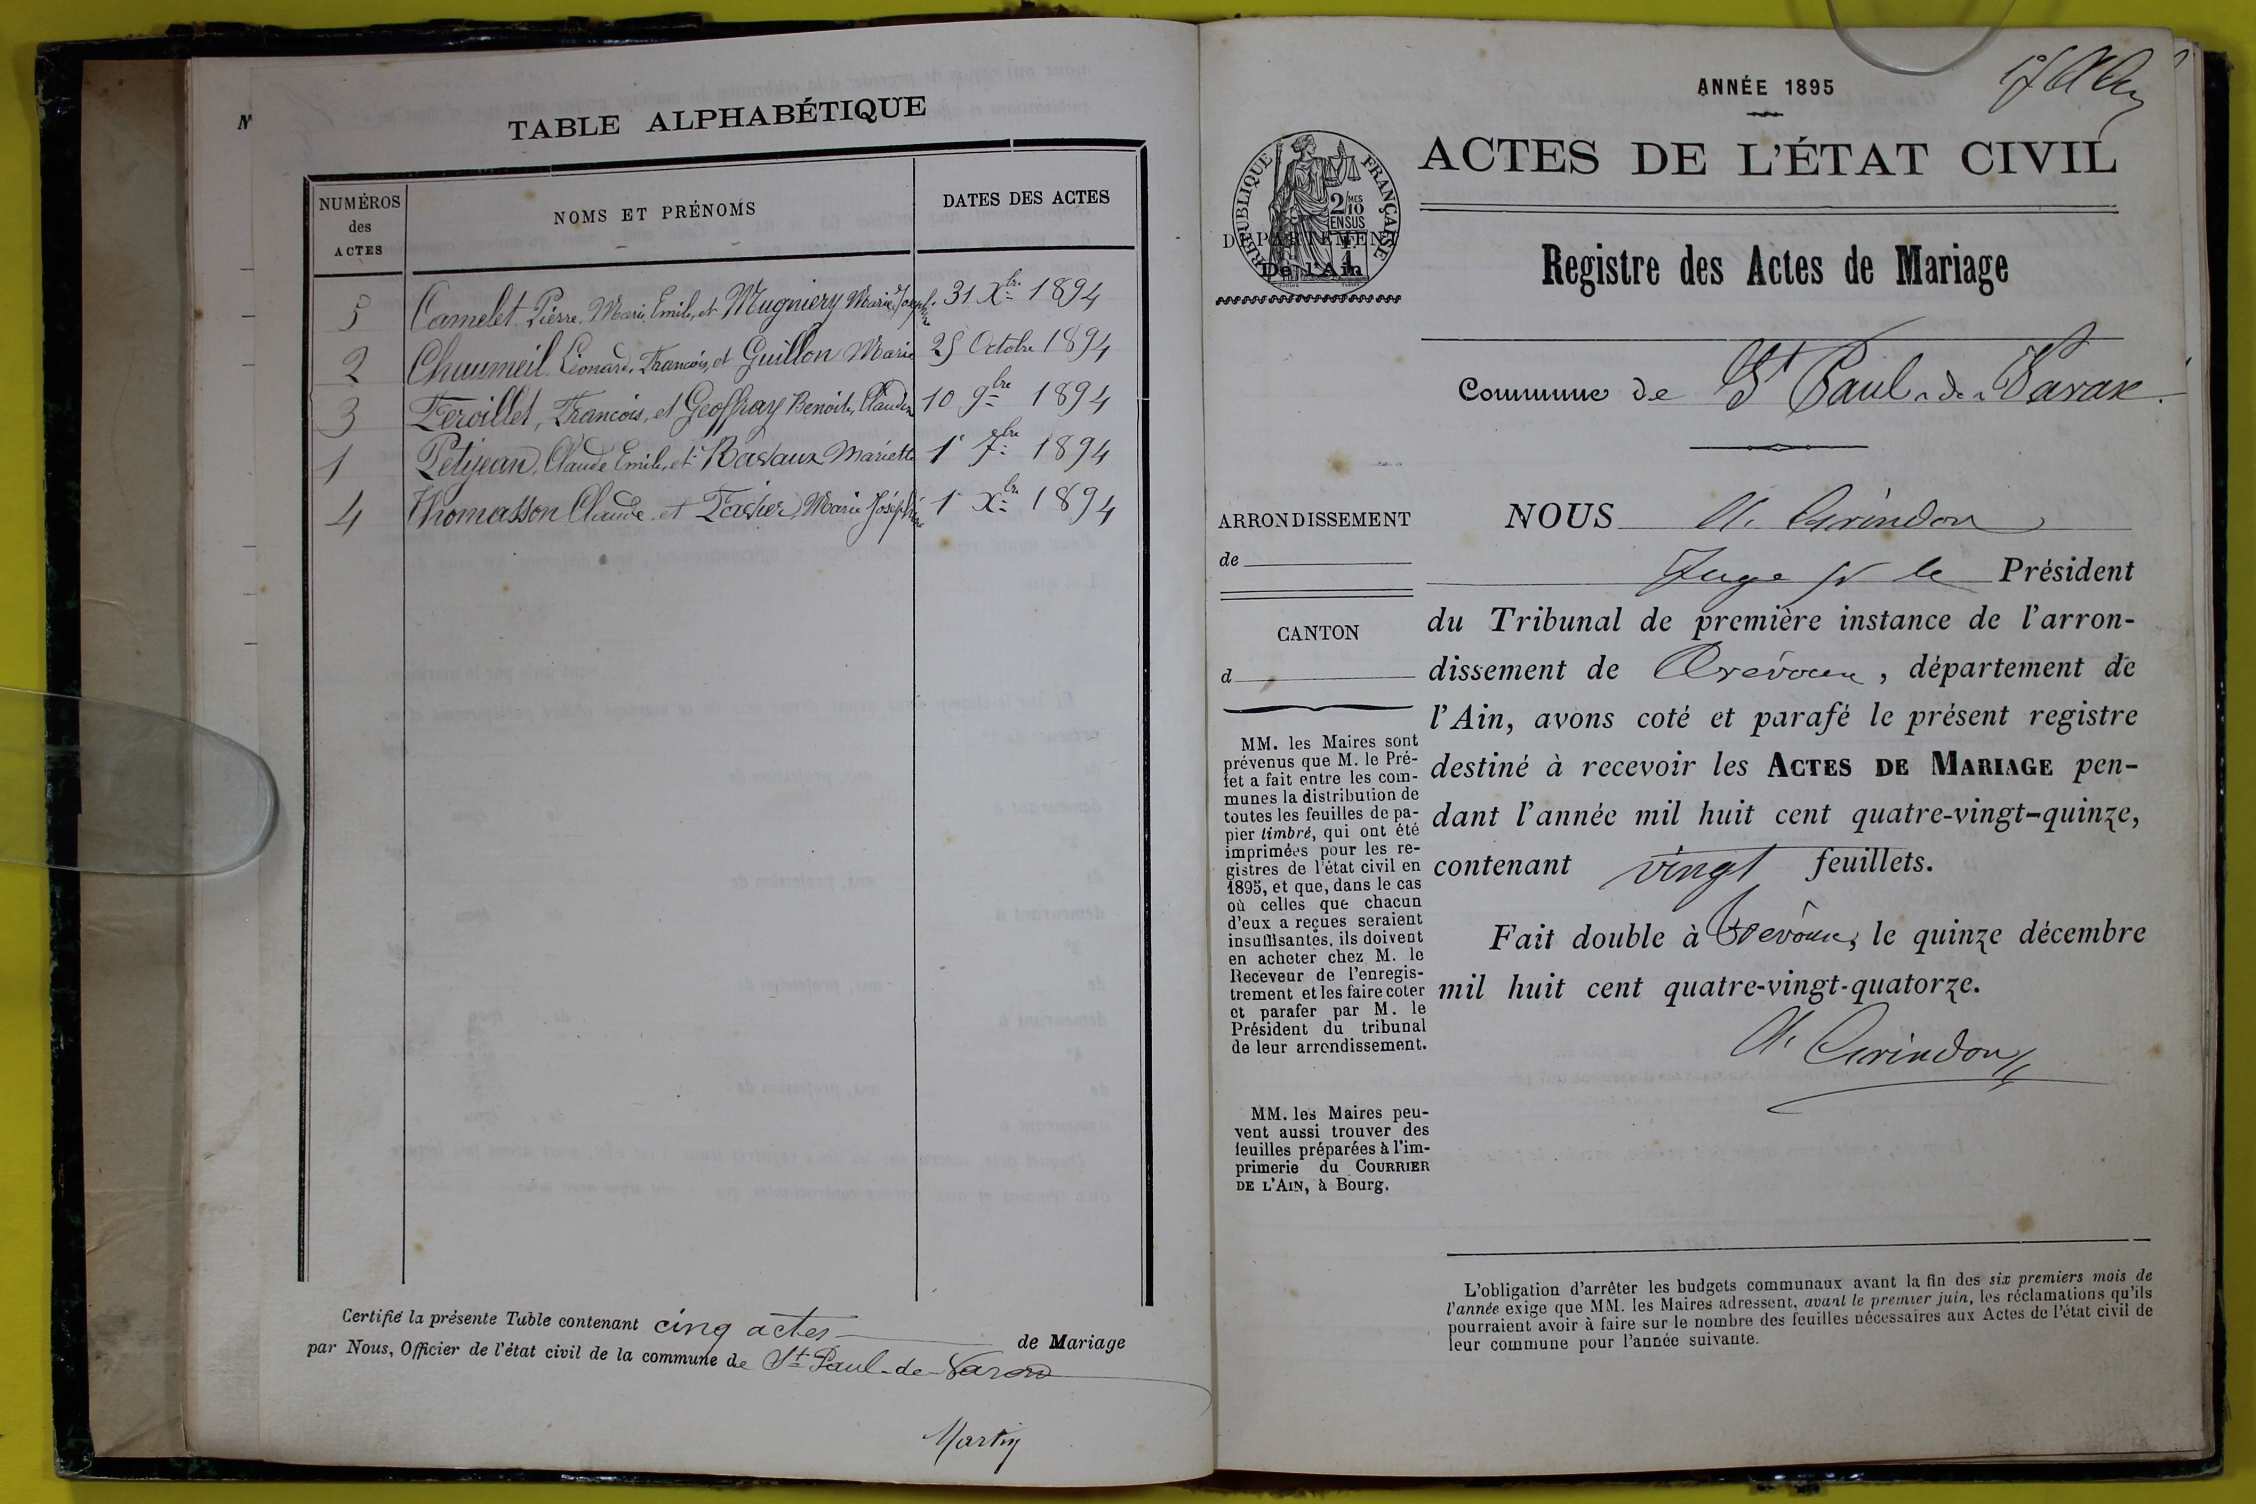 N
TABLE ALPHABÉTIQUE
NUMÉROS
des
ACTES
NOMS ET PRÉNOMS
DATES DES ACTES
5 Camelet Pierre Marie Emile, et Mugniery Marie Josephine 31 Xbre 1894
2 Chuumeil Léonard, Francois, et Guillon Marie 25 Octobre 1894
3 Feroillet, Francois, et Geoffray Benoite Claudine 10 9bre 1894
1 Petijean, Claude Emile, et Marietta 1er 7bre 1894
4 Thomasson Claude et Marie Joséphine 1er Xbre 1894
Certifié la présente Table contenant cinq actes de Mariage
par Nous, Officier de l'état civil de la commune de St Paul-de-Varax
Martin
ANNÉE 1895
ACTES DE L'ÉTAT CIVIL
RÉPUBLIQUE FRANÇAISE
2/10 MES
EN SUS
DÉPARTEMENT
De l'Ain
Registre des Actes de Mariage
Commune de St Paul-de-Varax.
ARRONDISSEMENT
de
CANTON
d
MM. les Maires sont
prévenus que M. le Pré-
fet a fait entre les com-
munes la distribution de
toutes les feuilles de pa-
pier timbré, qui ont été
imprimées pour les re-
gistres de l'état civil en
1895, et que, dans le cas
où celles que chacun
d'eux a reçues seraient
insuffisantes, ils doivent
en acheter chez M. le
Receveur de l'enregis-
trement et les faire coter
et parafer par M. le
Président du tribunal
de leur arrondissement.
MM. les Maires peu-
vent aussi trouver des
feuilles préparées à l'im-
primerie du COURRIER
DE L'AIN, à Bourg.
NOUS
Juge pr le Président
du Tribunal de première instance de l'arron-
dissement de Trévoux, département de
l'Ain, avons coté et parafé le présent registre
destiné à recevoir les ACTES DE MARIAGE pen-
dant l'année mil huit cent quatre-vingt-quinze,
contenant vingt feuillets.
Fait double à Trévoux, le quinze décembre
mil huit cent quatre-vingt-quatorze.
L'obligation d'arrêter les budgets communaux avant la fin des six premiers mois de
l'année exige que MM. les Maires adressent, avant le premier juin, les réclamations qu'ils
pourraient avoir à faire sur le nombre des feuilles nécessaires aux Actes de l'état civil de
leur commune pour l'année suivante.